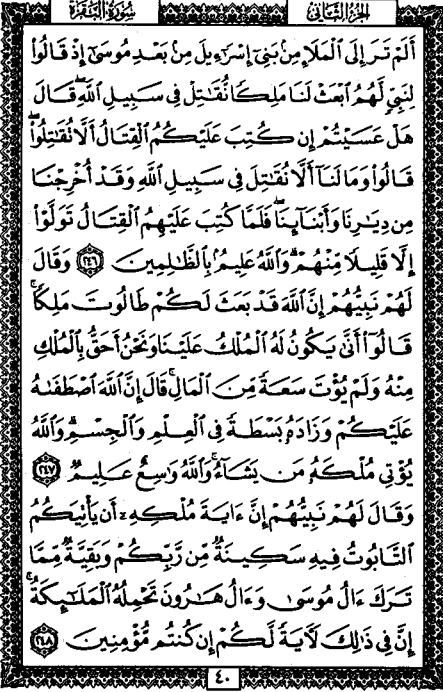 سُورَةُ البَقَرَةِ الجُزءُ الثَّانِي
أَلَمْ تَرَ إِلَى ٱلْمَلَإِ مِنۢ بَنِىٓ إِسْرَٰٓءِيلَ مِنۢ بَعْدِ مُوسَىٰٓ إِذْ قَالُوا۟
لِنَبِىٍّ لَّهُمُ ٱبْعَثْ لَنَا مَلِكًا نُّقَٰتِلْ فِى سَبِيلِ ٱللَّهِ ۖ قَالَ
هَلْ عَسَيْتُمْ إِن كُتِبَ عَلَيْكُمُ ٱلْقِتَالُ أَلَّا تُقَٰتِلُوا۟ ۖ
قَالُوا۟ وَمَا لَنَآ أَلَّا نُقَٰتِلَ فِى سَبِيلِ ٱللَّهِ وَقَدْ أُخْرِجْنَا
مِن دِيَٰرِنَا وَأَبْنَآئِنَا ۖ فَلَمَّا كُتِبَ عَلَيْهِمُ ٱلْقِتَالُ تَوَلَّوْا۟
إِلَّا قَلِيلًا مِّنْهُمْ ۗ وَٱللَّهُ عَلِيمٌۢ بِٱلظَّٰلِمِينَ ٢٤٦ وَقَالَ
لَهُمْ نَبِيُّهُمْ إِنَّ ٱللَّهَ قَدْ بَعَثَ لَكُمْ طَالُوتَ مَلِكًا ۚ
قَالُوٓا۟ أَنَّىٰ يَكُونُ لَهُ ٱلْمُلْكُ عَلَيْنَا وَنَحْنُ أَحَقُّ بِٱلْمُلْكِ
مِنْهُ وَلَمْ يُؤْتَ سَعَةً مِّنَ ٱلْمَالِ ۚ قَالَ إِنَّ ٱللَّهَ ٱصْطَفَىٰهُ
عَلَيْكُمْ وَزَادَهُۥ بَسْطَةً فِى ٱلْعِلْمِ وَٱلْجِسْمِ ۖ وَٱللَّهُ
يُؤْتِى مُلْكَهُۥ مَن يَشَآءُ ۚ وَٱللَّهُ وَٰسِعٌ عَلِيمٌ ٢٤٧
وَقَالَ لَهُمْ نَبِيُّهُمْ إِنَّ ءَايَةَ مُلْكِهِۦٓ أَن يَأْتِيَكُمُ
ٱلتَّابُوتُ فِيهِ سَكِينَةٌ مِّن رَّبِّكُمْ وَبَقِيَّةٌ مِّمَّا
تَرَكَ ءَالُ مُوسَىٰ وَءَالُ هَٰرُونَ تَحْمِلُهُ ٱلْمَلَٰٓئِكَةُ ۚ
إِنَّ فِى ذَٰلِكَ لَءَايَةً لَّكُمْ إِن كُنتُم مُّؤْمِنِينَ ٢٤٨
٤٠